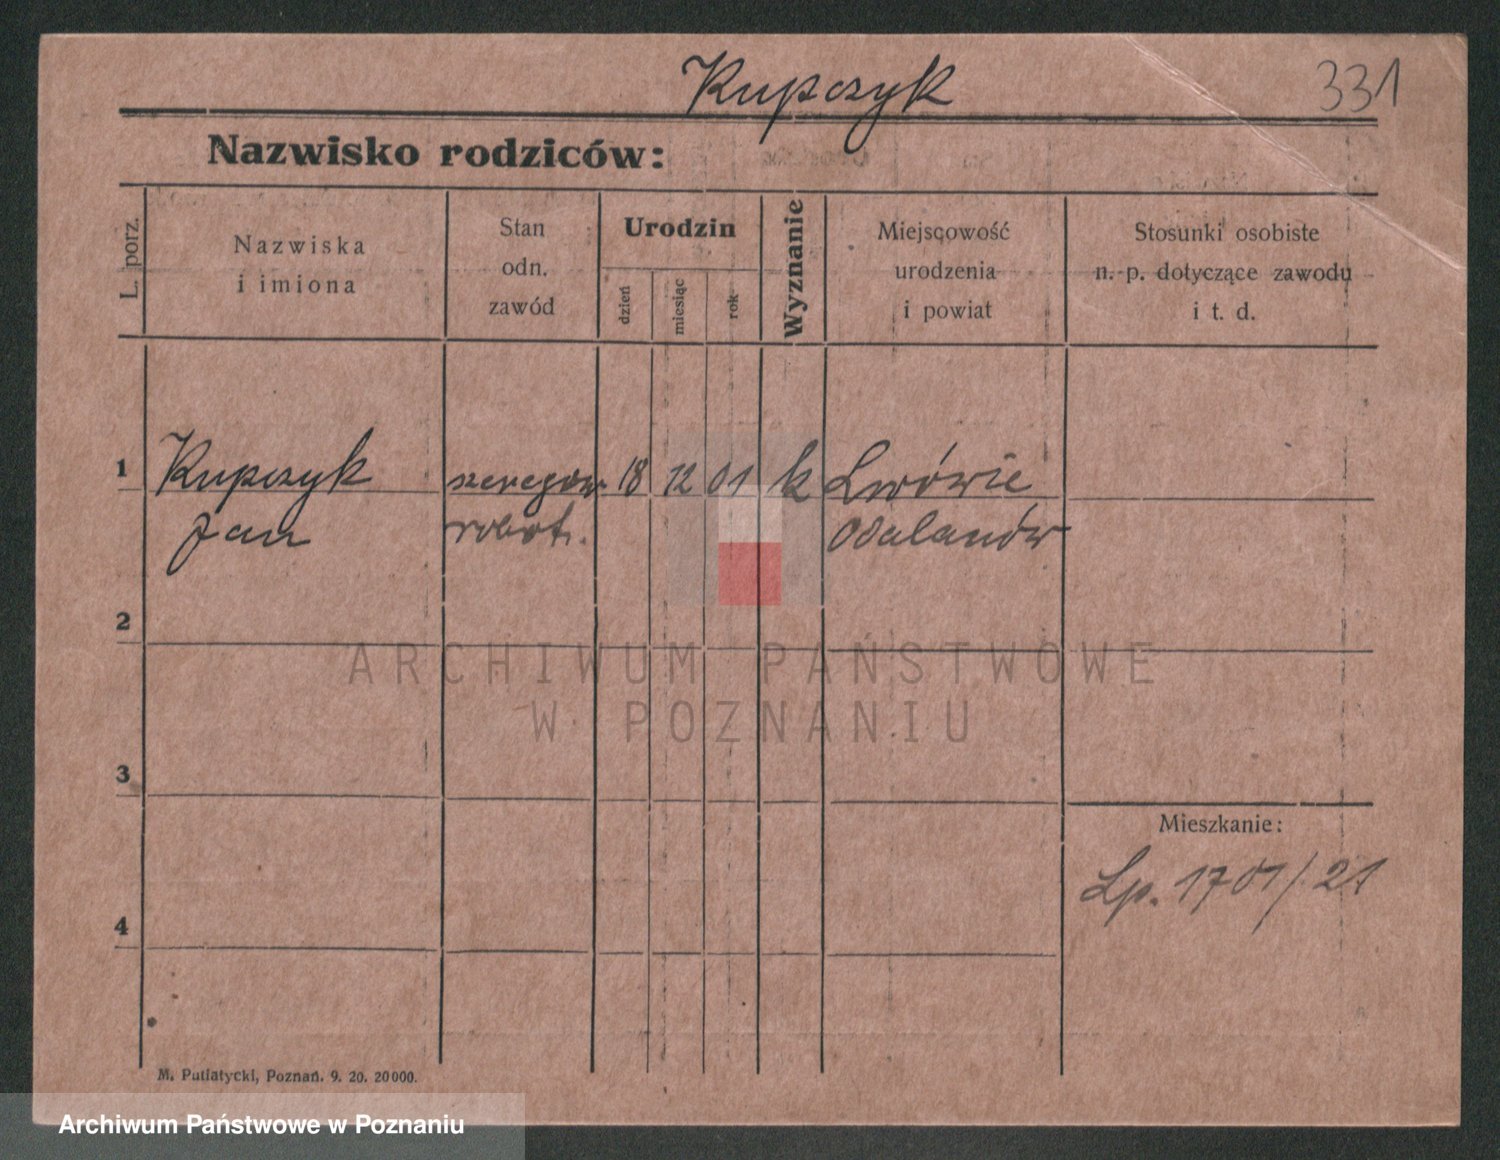 Kupczyk
331
Nazwisko rodziców:
L. porz.
Nazwiska
i imiona
Stan
odn.
zawód
Urodzin
dzień
miesiąc
rok
Wyznanie
Miejscowość
urodzenia
i powiat
Stosunki osobiste
n. p. dotyczące zawodu
i t. d.
1
Kupczyk
Jan
szeregow
robotn.
18
12
01
k
Lwówie
Odalanów
2
3
4
Mieszkanie:
Lp. 1701/21
M. Putiatycki, Poznań. 9. 20. 20000.
ARCHIWUM PAŃSTWOWE
W POZNANIU
Archiwum Państwowe w Poznaniu